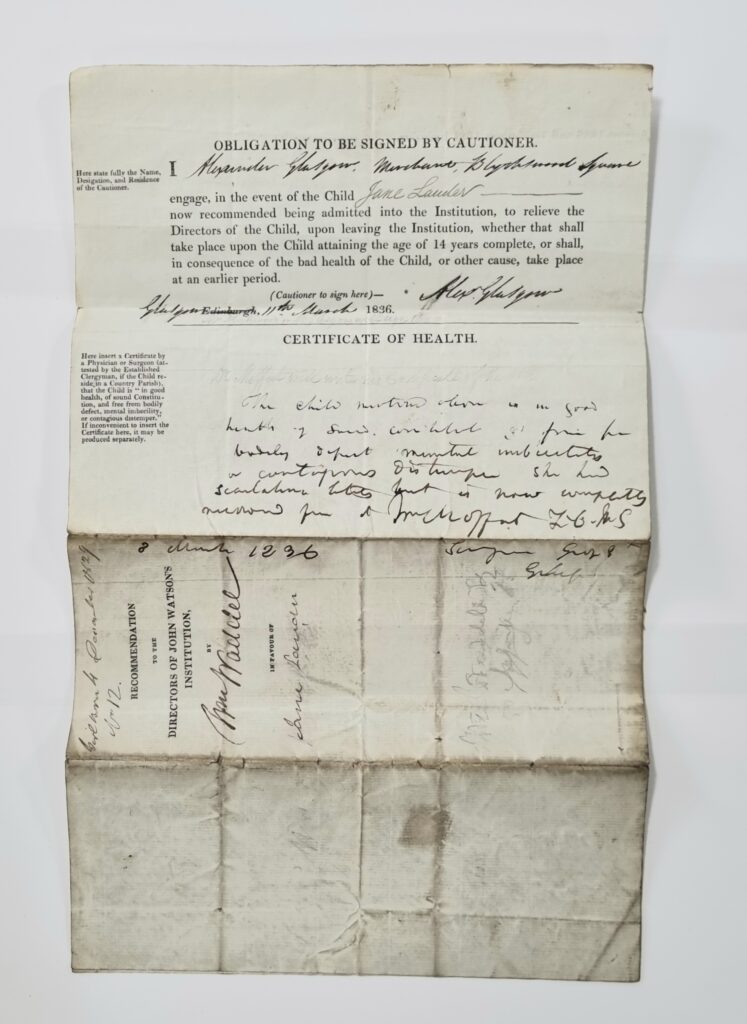 OBLIGATION TO BE SIGNED BY CAUTIONER.
Here state fully the Name,
Designation, and Residence
of the Cautioner.
I Alexander Glasgow, Merchant, Blythswood Square
engage, in the event of the Child Jane Lauder
now recommended being admitted into the Institution, to relieve the
Directors of the Child, upon leaving the Institution, whether that shall
take place upon the Child attaining the age of 14 years complete, or shall,
in consequence of the bad health of the Child, or other cause, take place
at an earlier period.
(Cautioner to sign here)— * Alexr. Glasgow
Glasgow Edinburgh, 11th March 1836.
CERTIFICATE OF HEALTH.
Here insert a Certificate by
a Physician or Surgeon (at-
tested by the Established
Clergyman, if the Child re-
side in a Country Parish),
that the Child is "in good
health, of sound Constitu-
tion, and free from bodily
defect, mental imbecility,
or contagious distemper."
If inconvenient to insert the
Certificate here, it may be
produced separately.
The child above is in good
health of and free
bodily defect mental
or contagious distemper she had
scarlatina but is now completely
Moffat
8 March 1836
Surgeon
Girl born 4 December 1829
No 12.
RECOMMENDATION
TO THE
DIRECTORS OF JOHN WATSON'S
INSTITUTION,
BY
Waddell
IN FAVOUR OF
Jane Lauder